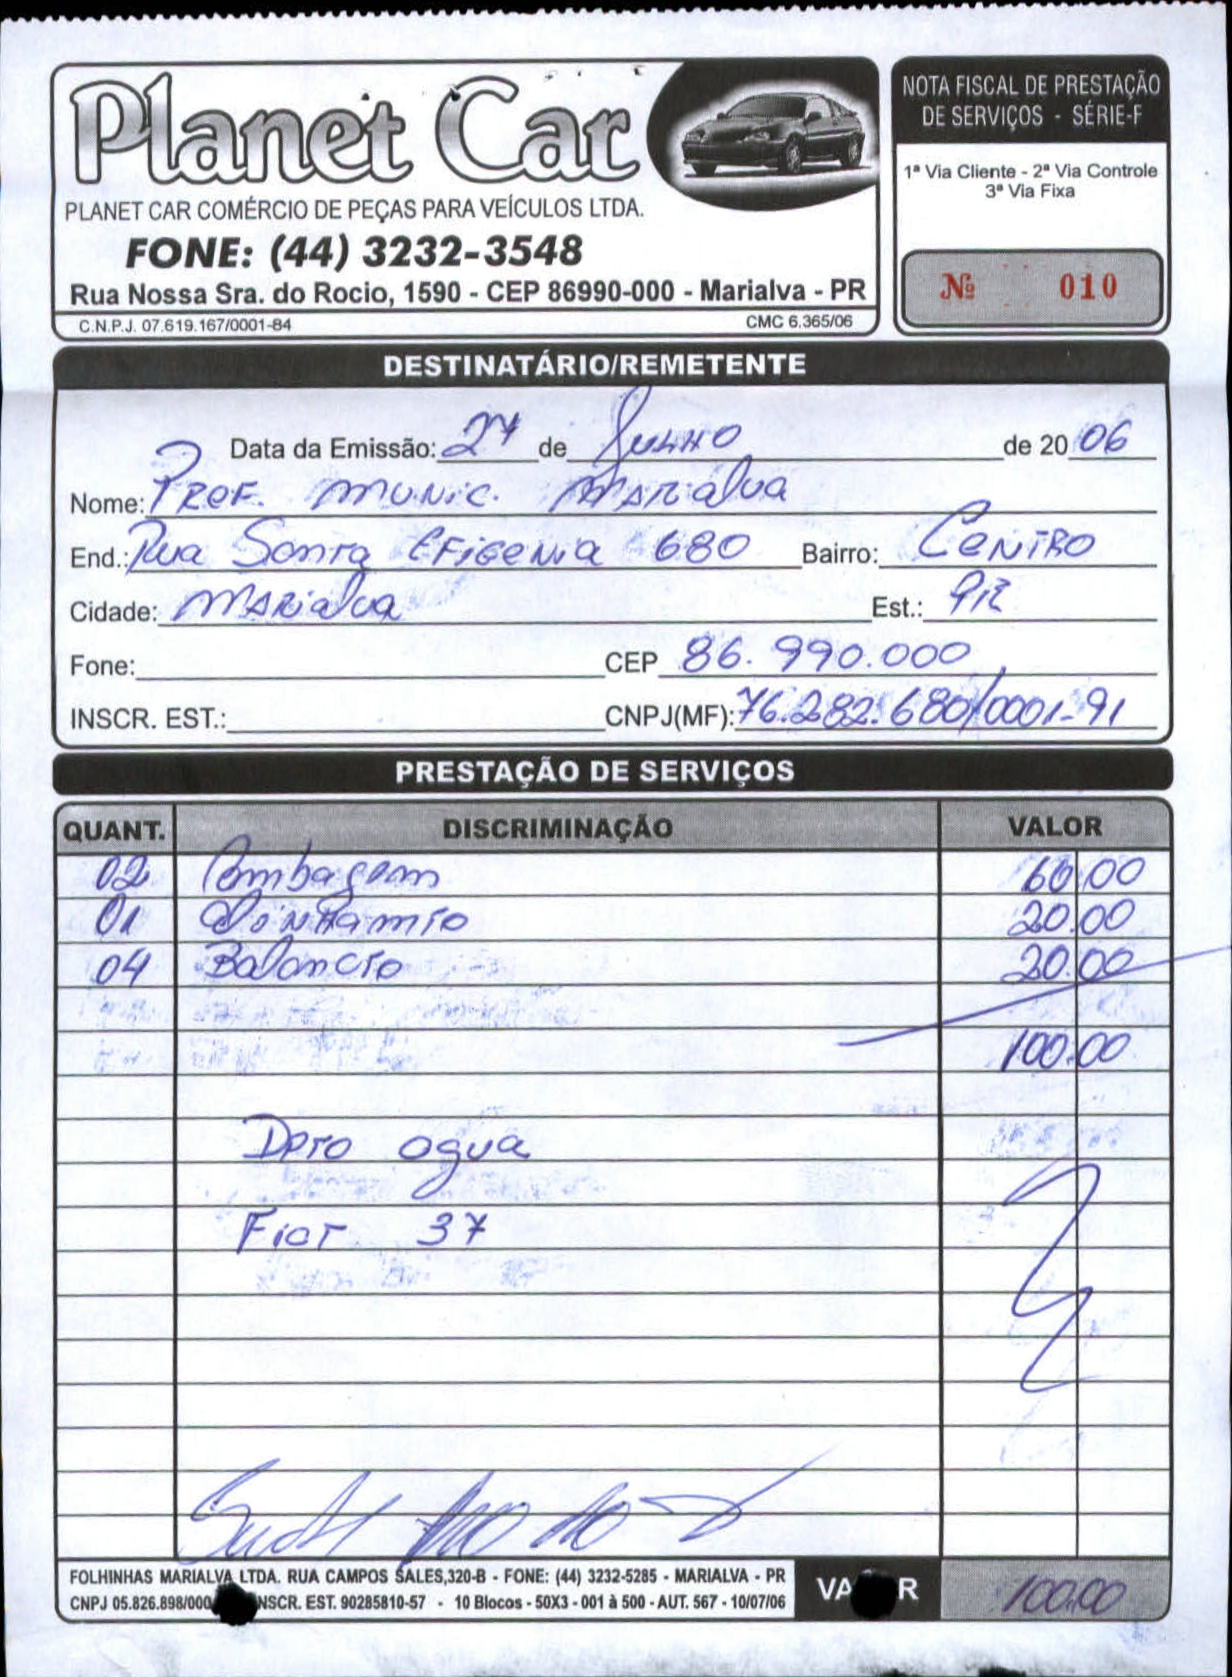 Planet Car
PLANET CAR COMÉRCIO DE PEÇAS PARA VEÍCULOS LTDA.
FONE: (44) 3232-3548
Rua Nossa Sra. do Rocio, 1590 - CEP 86990-000 - Marialva - PR
C.N.P.J. 07.619.167/0001-84 CMC 6.365/06
NOTA FISCAL DE PRESTAÇÃO
DE SERVIÇOS - SÉRIE-F
1ª Via Cliente - 2ª Via Controle
3ª Via Fixa
Nº 010
DESTINATÁRIO/REMETENTE
Data da Emissão: 27 de Julho de 20 06
Nome: Pref. Munic. Marialva
End.: Rua Santa Efigenia 680 Bairro: Centro
Cidade: Marialva Est.: PR
Fone: CEP 86.990.000
INSCR. EST.: CNPJ(MF): 76.282.680/0001-91
PRESTAÇÃO DE SERVIÇOS
QUANT. DISCRIMINAÇÃO VALOR
02 Cambagem 60,00
01 20.00
04 20.00
100.00
Dpto agua
Fiat 37
FOLHINHAS MARIALVA LTDA. RUA CAMPOS SALES,320-B - FONE: (44) 3232-5285 - MARIALVA - PR
CNPJ 05.826.898/000 NSCR. EST. 90285810-57 - 10 Blocos - 50X3 - 001 à 500 - AUT. 567 - 10/07/06
VA R 100.00